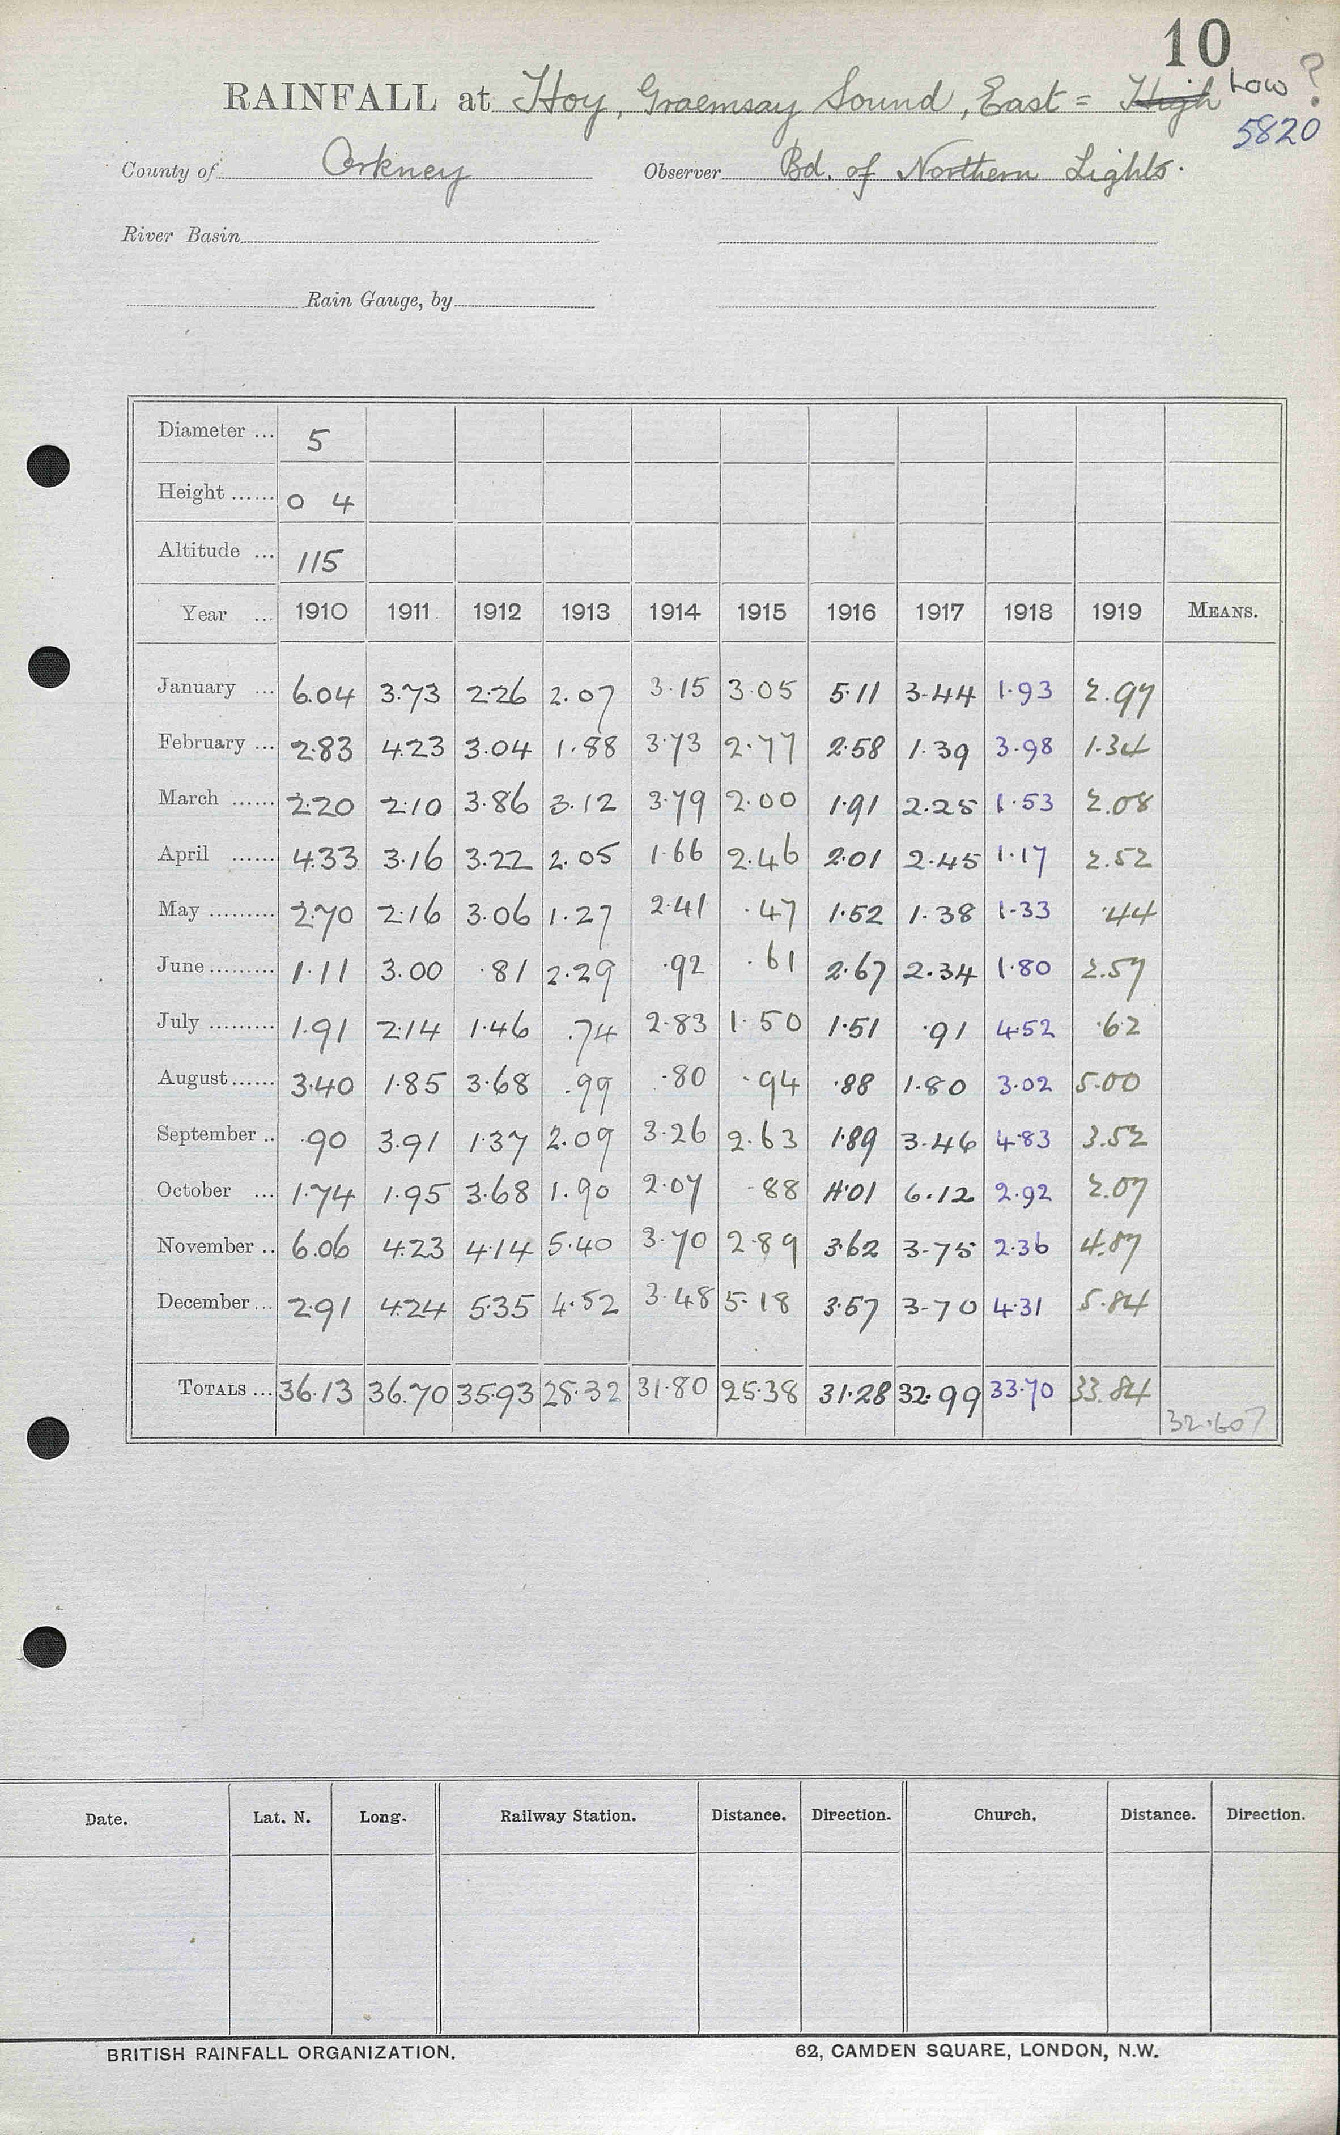 10
RAINFALL at Hoy, Graemsay Sound, East = High Low ?
5820
County of Orkney Observer Bd. of Northern Lights.
River Basin
Rain Gauge, by
Diameter ... 5
Height ...... 0 4
Altitude ... 115
Year ... 1910 1911 1912 1913 1914 1915 1916 1917 1918 1919 MEANS.
January ... 6.04 3.73 2.26 2.07 3.15 3.05 5.11 3.44 1.93 2.97
February ... 2.83 4.23 3.04 1.88 3.73 2.77 2.58 1.39 3.98 1.34
March ...... 2.20 2.10 3.86 3.12 3.79 2.00 1.91 2.25 1.53 2.08
April ...... 4.33 3.16 3.22 2.05 1.66 2.46 2.01 2.45 1.17 2.52
May ......... 2.70 2.16 3.06 1.27 2.41 .47 1.52 1.38 1.33 .44
June ......... 1.11 3.00 .81 2.29 .92 .61 2.67 2.34 1.80 2.57
July ......... 1.91 2.14 1.46 .74 2.83 1.50 1.51 .91 4.52 .62
August ...... 3.40 1.85 3.68 .99 .80 .94 .88 1.80 3.02 5.00
September .. .90 3.91 1.37 2.09 3.26 2.63 1.89 3.46 4.83 3.52
October ... 1.74 1.95 3.68 1.90 2.07 .88 4.01 6.12 2.92 2.07
November .. 6.06 4.23 4.14 5.40 3.70 2.89 3.62 3.75 2.36 4.87
December ... 2.91 4.24 5.35 4.52 3.48 5.18 3.57 3.70 4.31 5.84
TOTALS ... 36.13 36.70 35.93 28.32 31.80 25.38 31.28 32.99 33.70 33.84
32.607
Date. Lat. N. Long. Railway Station. Distance. Direction. Church. Distance. Direction.
BRITISH RAINFALL ORGANIZATION. 62, CAMDEN SQUARE, LONDON, N.W.